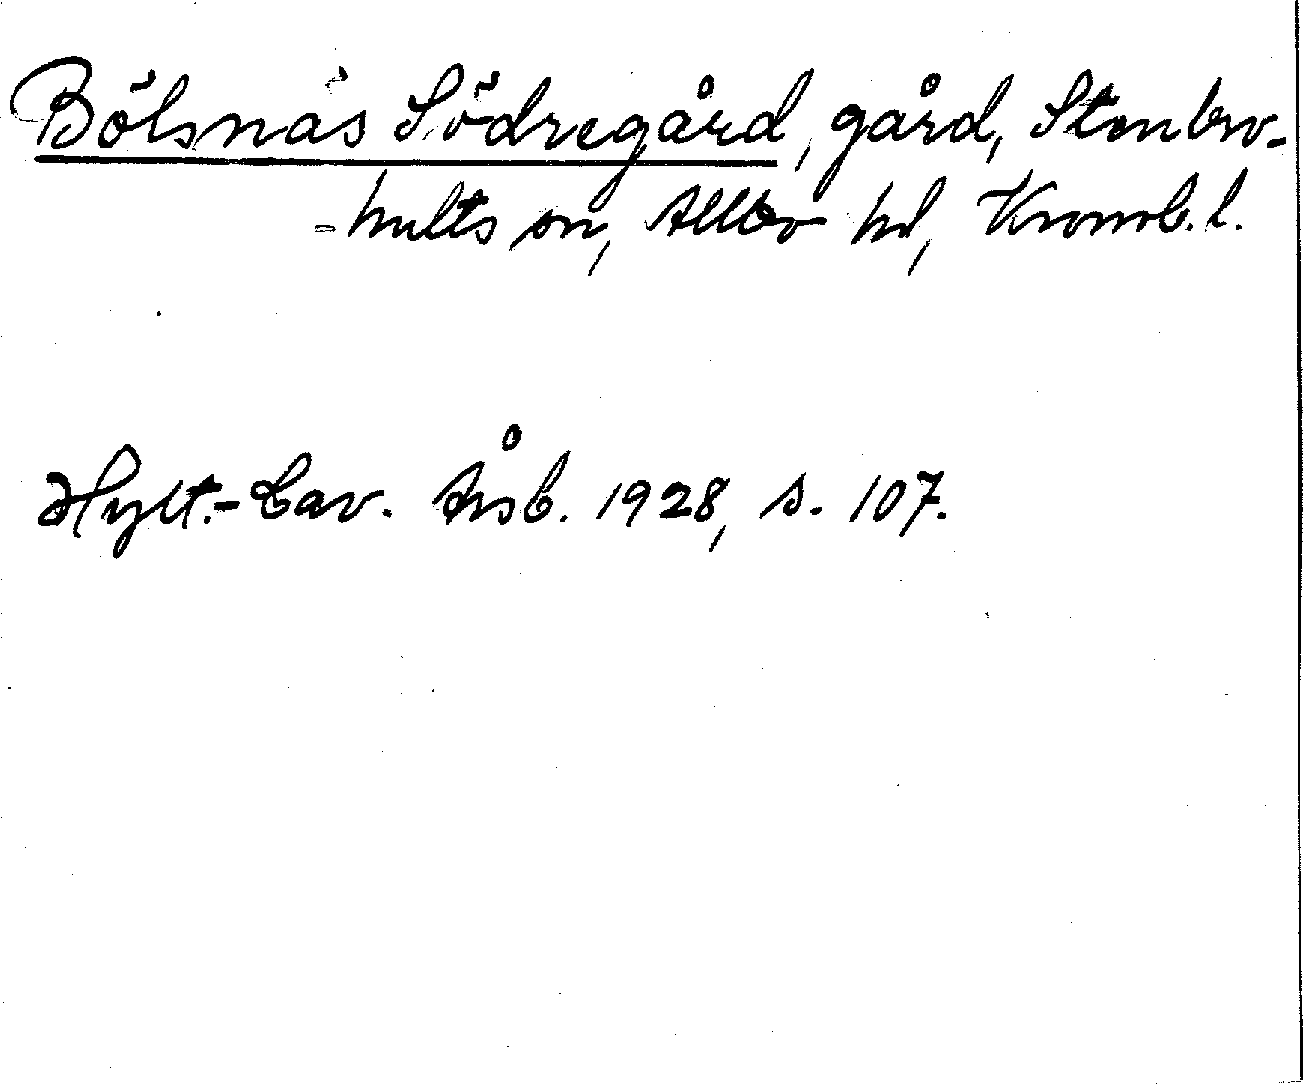 Bölsnäs Södregård, gård, Stenbro-
-hults sn, Allbo hd, Kronob. l.
Hylt.-Cav. Årsb. 1928, s. 107.